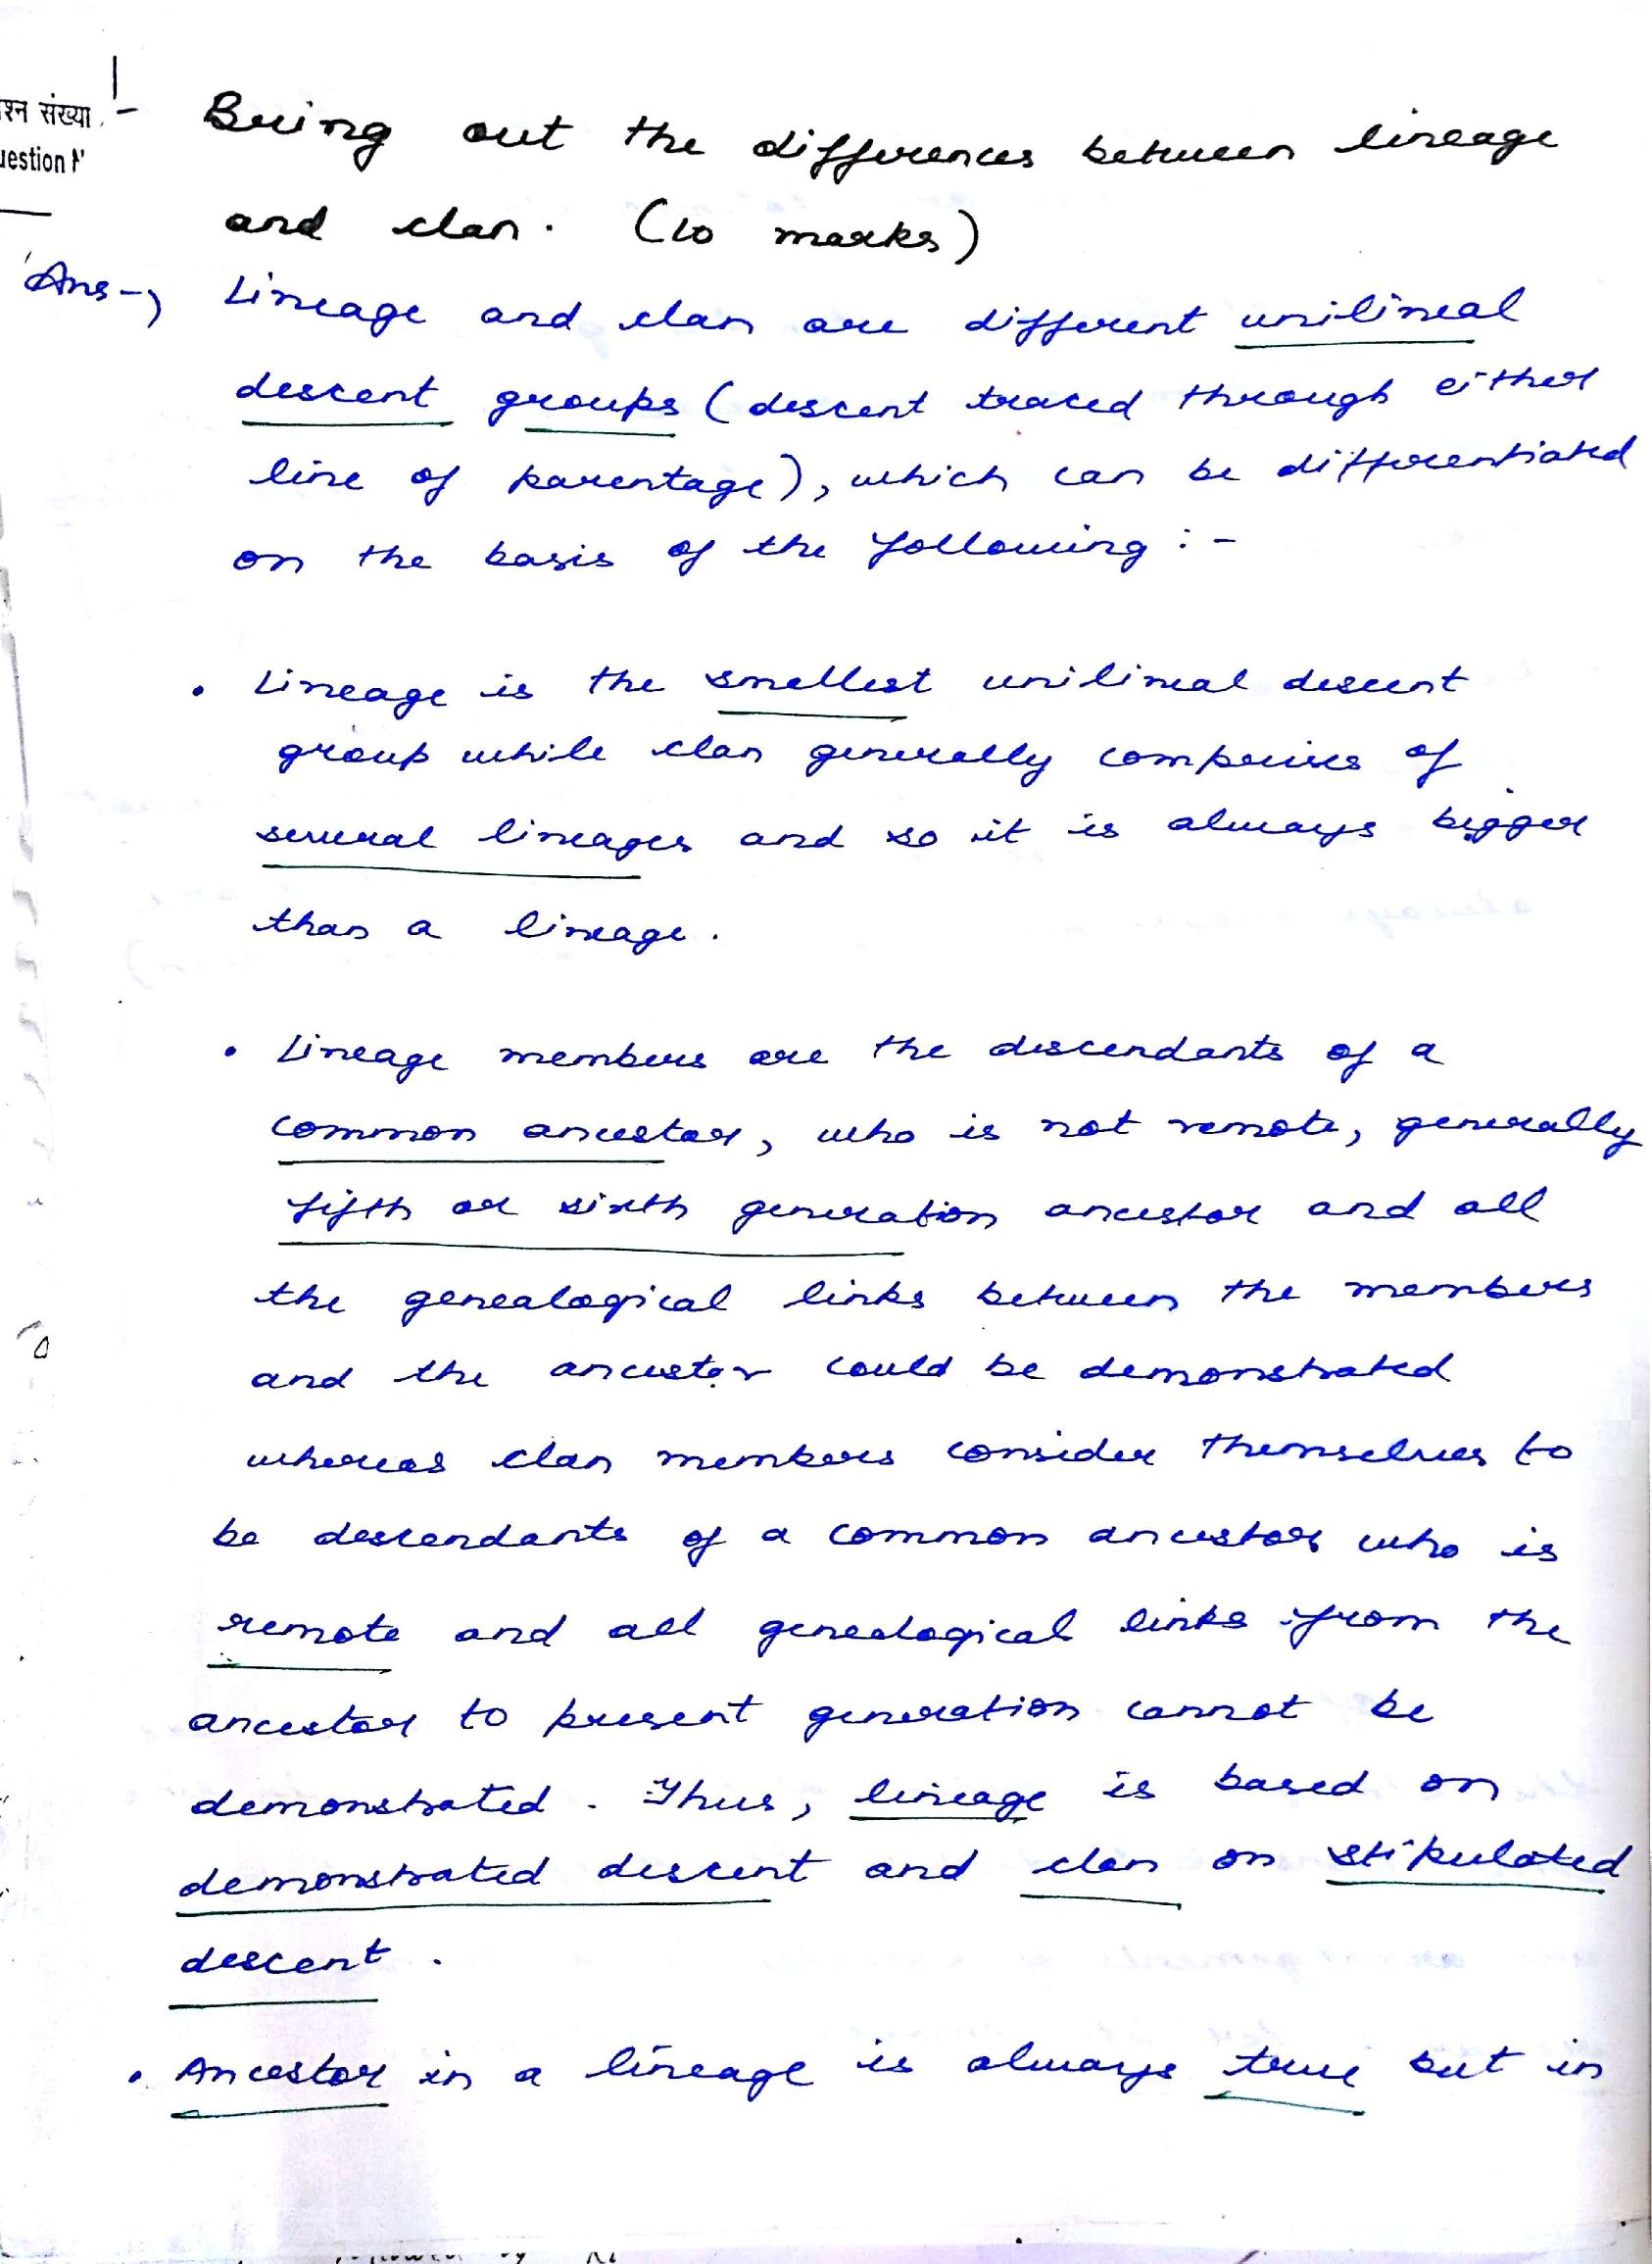 1-
श्न संख्या.
uestion N
Bring out the differences between lineage
and clan. (10 marks)
Ans→ Lineage and clan are different unilineal
descent groups (descent traced through either
line of parentage), which can be differentiated
on the basis of the following :-
• Lineage is the smallest unilineal descent
group while clan generally comprises of
several lineages and so it is always bigger
than a lineage.
• Lineage members are the descendants of a
common ancestor, who is not remote, generally
fifth or sixth generation ancestor and all
the genealogical links between the members
and the ancestor could be demonstrated
whereas clan members consider themselves to
be descendants of a common ancestor who is
remote and all genealogical links from the
ancestor to present generation cannot be
demonstrated. Thus, lineage is based on
demonstrated descent and clan on stipulated
descent.
• Ancestor in a lineage is always true but in